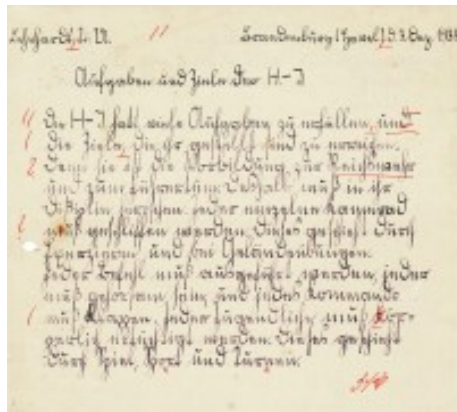 Brandenburg (Havel), d. 3. Dez. 193
Aufgaben und Ziele der H-J
Die H-J hat viele Aufgaben zu erfüllen, und
die Ziele, die ihr gestellt sind zu erreichen.
Denn sie ist die Vorbildung zur Reichswehr
und zum Führertum. Deshalb muß in ihr
Disziplin herrschen. Jeder einzelne Kamerad
muß geschliffen werden. Dieses geschieht durch
Exerzieren und bei Geländeübungen.
Jeder Befehl muß ausgeführt werden, jeder
muß gehorsam sein, und jedes Kommando
muß klappen. Jeder Jugendliche muß kör-
perlich ertüchtigt werden. Dieses geschieht
durch Spiel, Sport und Turnen.